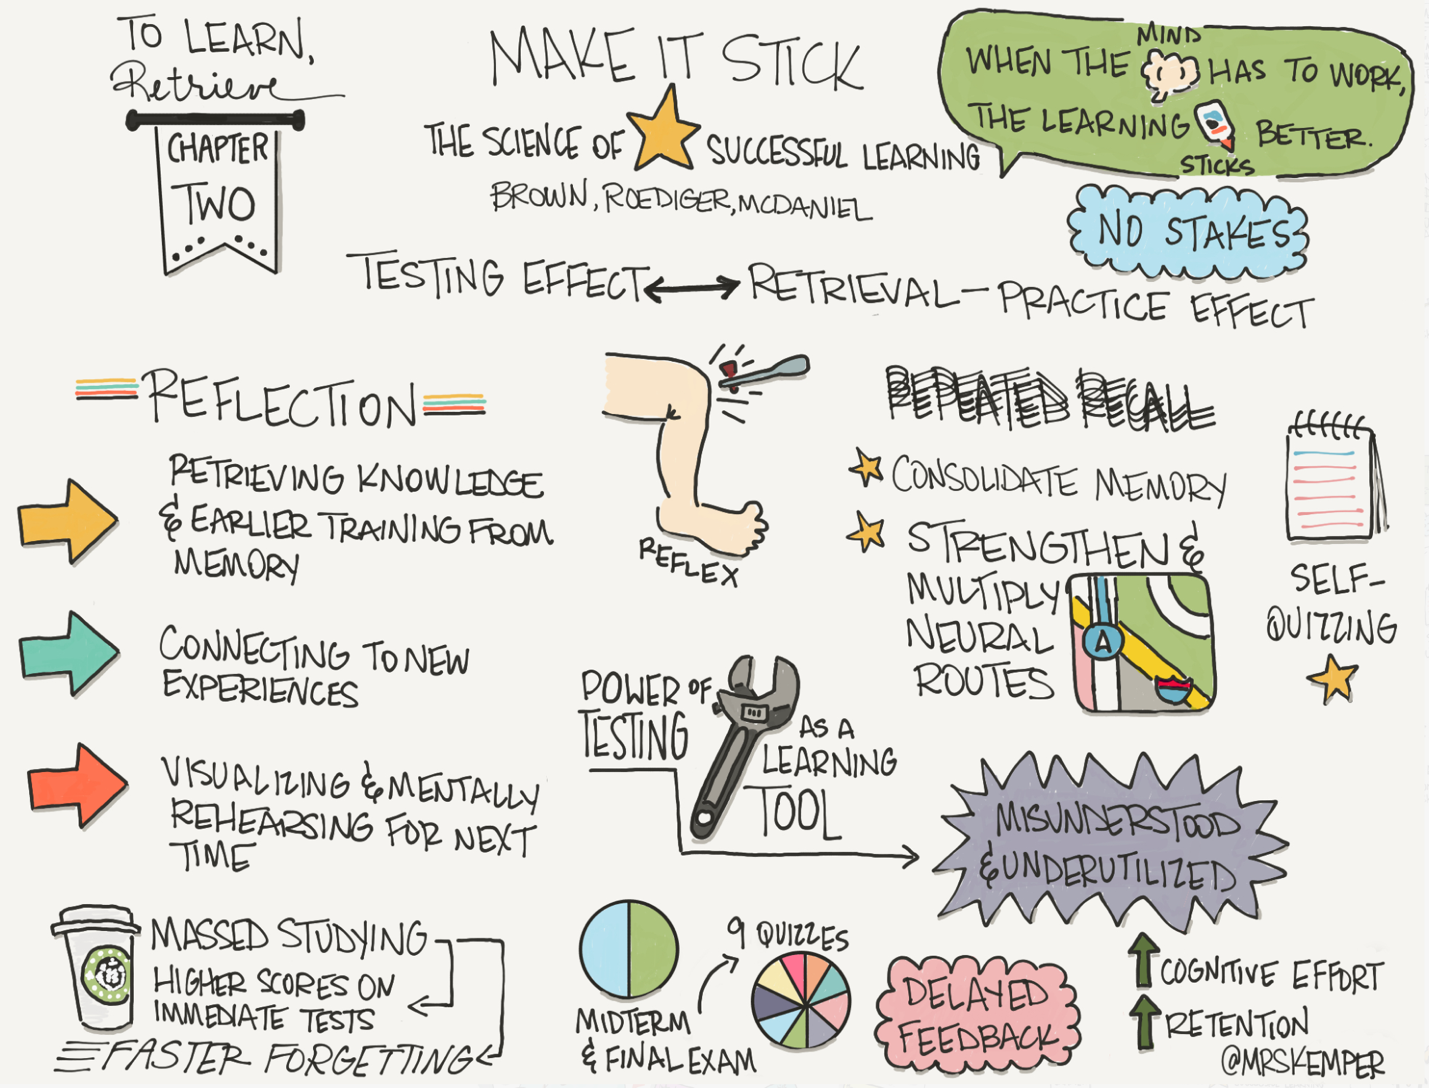 TO LEARN,
Retrieve
CHAPTER
TWO
MAKE IT STICK
THE SCIENCE OF SUCCESSFUL LEARNING
BROWN, ROEDIGER, MCDANIEL
MIND
WHEN THE HAS TO WORK,
THE LEARNING BETTER.
STICKS
NO STAKES
TESTING EFFECT ↔ RETRIEVAL-PRACTICE EFFECT
REFLECTION
RETRIEVING KNOWLEDGE
& EARLIER TRAINING FROM
MEMORY
CONNECTING TO NEW
EXPERIENCES
VISUALIZING & MENTALLY
REHEARSING FOR NEXT
TIME
REFLEX
REPEATED RECALL
CONSOLIDATE MEMORY
STRENGTHEN &
MULTIPLY
NEURAL
ROUTES
A
SELF-
QUIZZING
POWER OF
TESTING
AS A
LEARNING
TOOL
MISUNDERSTOOD
& UNDERUTILIZED
MASSED STUDYING
HIGHER SCORES ON
IMMEDIATE TESTS
FASTER FORGETTING
MIDTERM
& FINAL EXAM
9 QUIZZES
DELAYED
FEEDBACK
COGNITIVE EFFORT
RETENTION
@MRSKEMPER